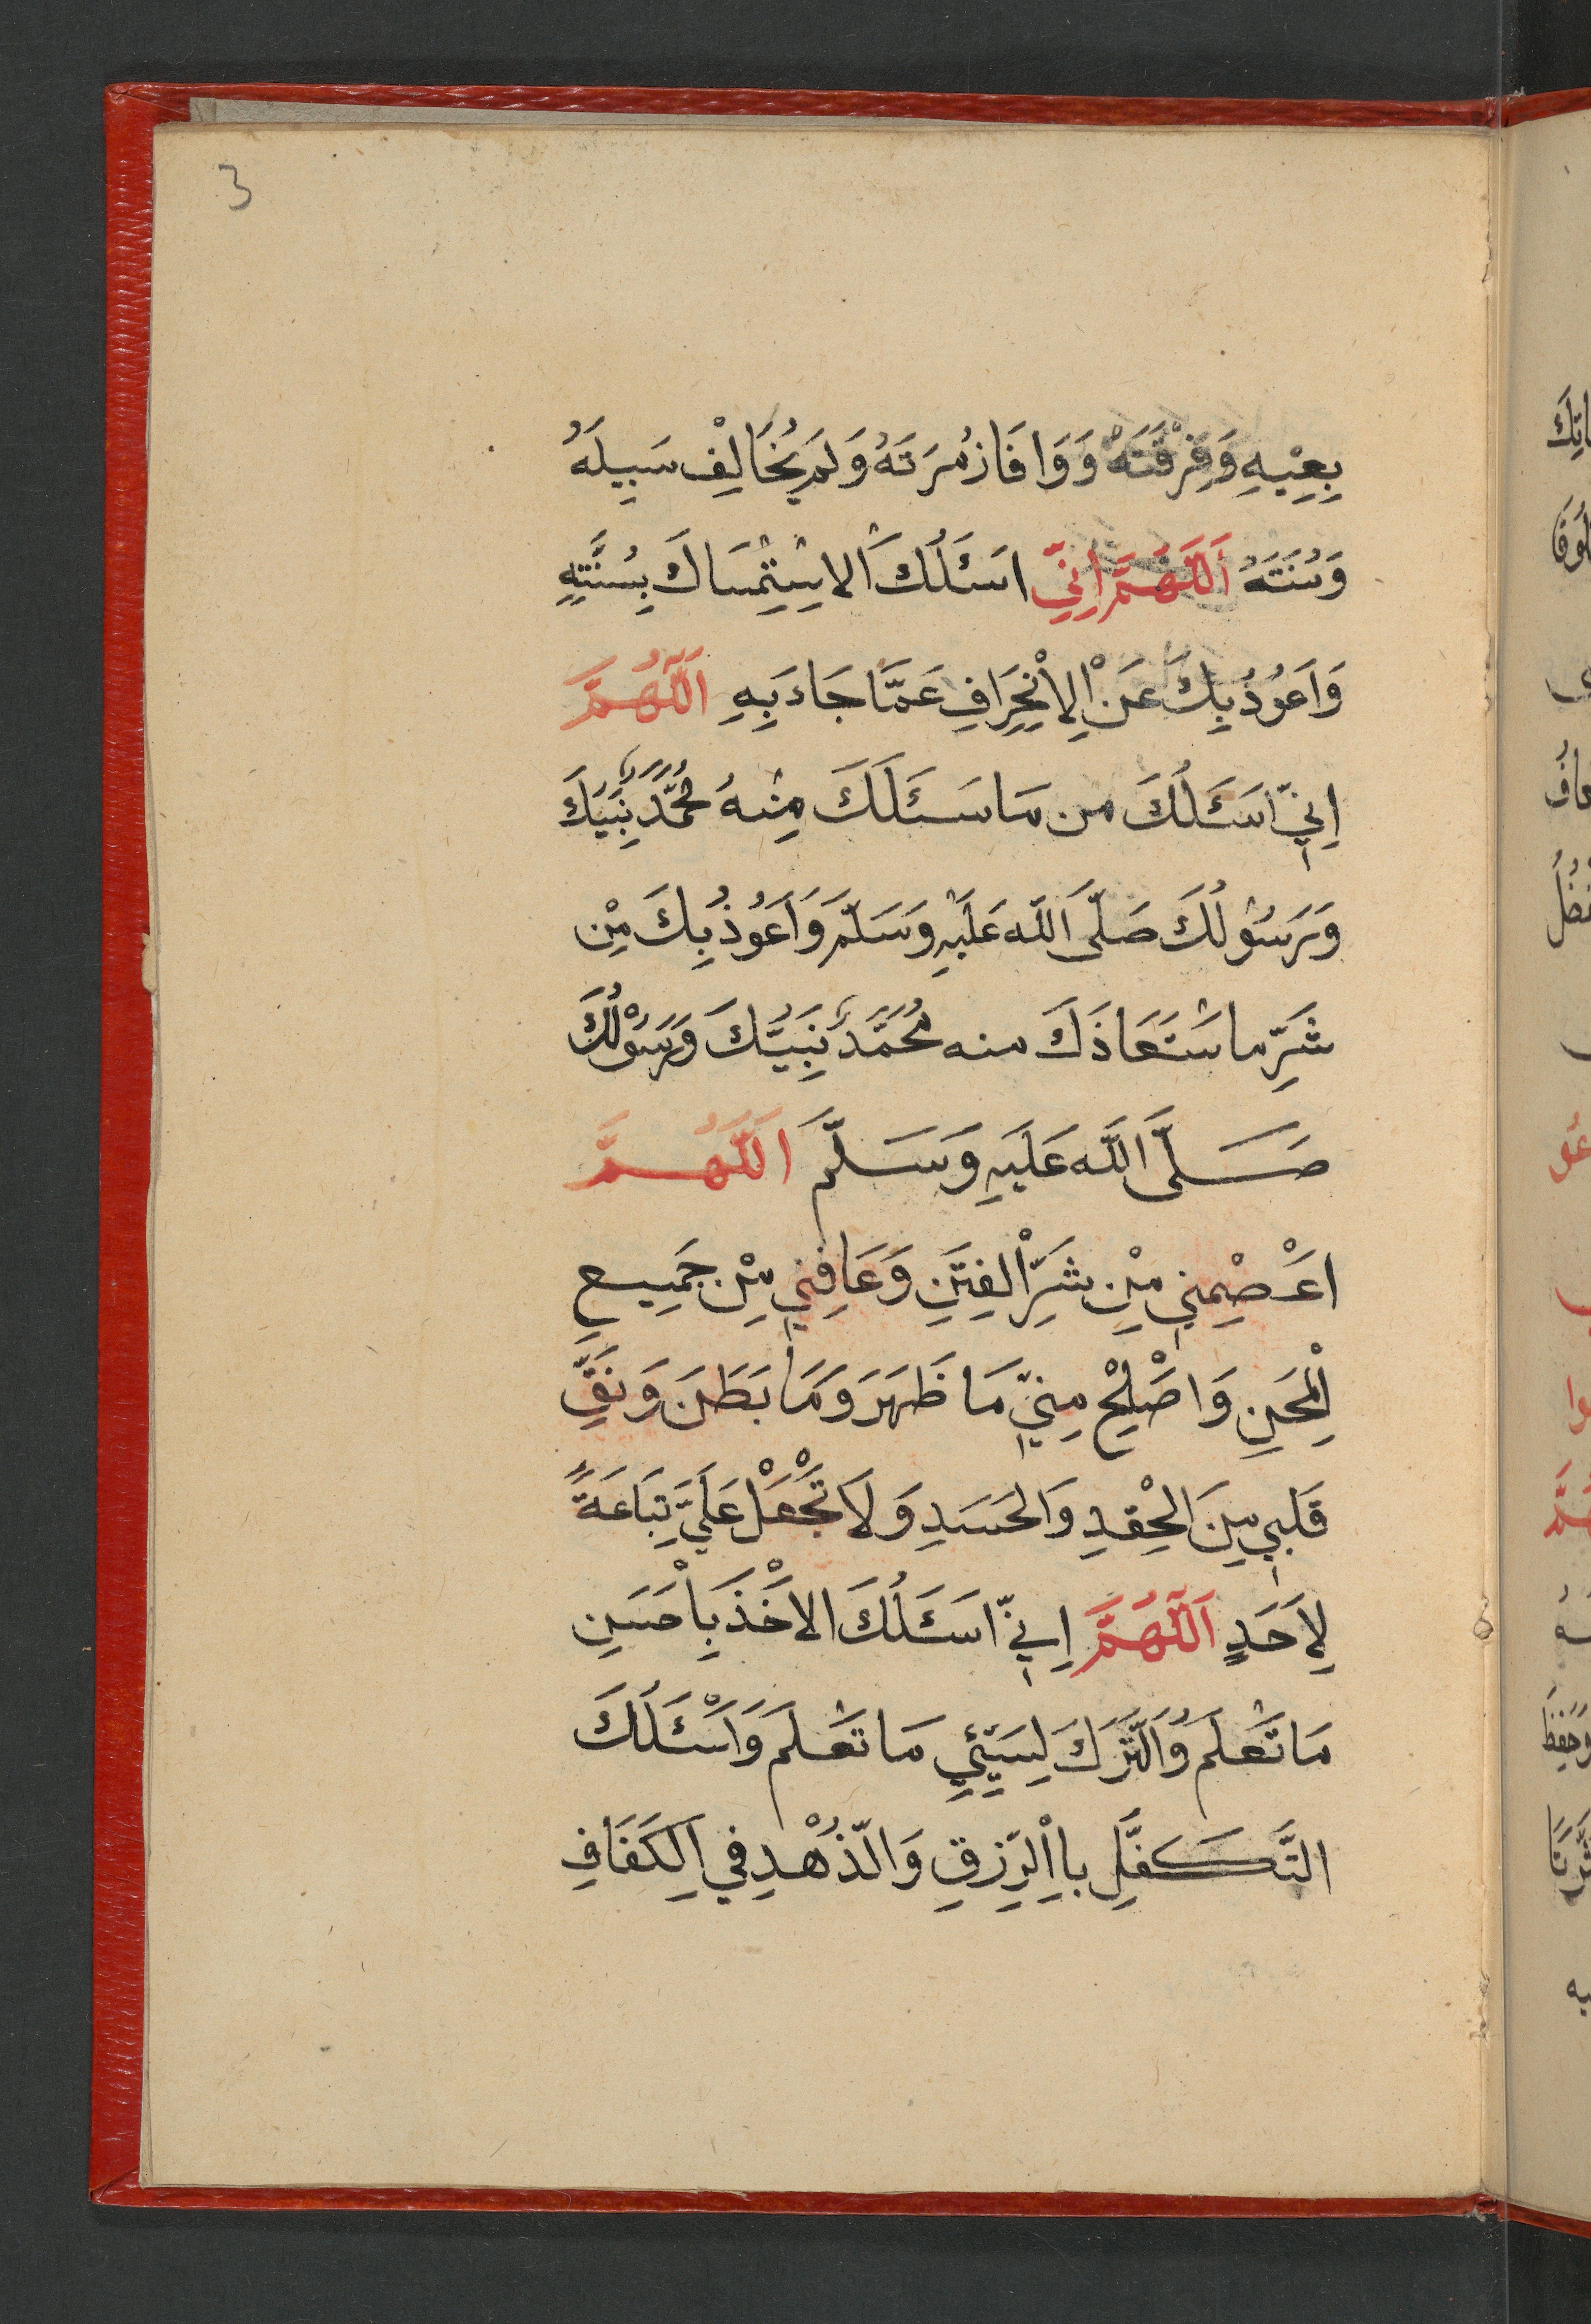 3
بِعِيْهِ وَفِرْقَتَهُ وَوَافَا زُمْرَتَهُ وَلَمْ يُخَالِفْ سَبِيلَهُ
وَسُنَتَهُ اَللَّهُمَّ اِنِّي اسَئَلُكَ الاسِتِمْسَاكَ بِسُنَّتِهِ
وَاَعُوْذُ بِكَ عَنْ اْلِانْحِرَافِ عَمَّا جَاءَ بِهِ اَللّٰهُمَّ
اِنِّي اسَئَلُكَ من مَا سَئَلَكَ مِنْهُ مُحَمَّدٌ نَبِيُّكَ
وَرَسُوْلُكَ صَلَّى اَللَّه عَلَيْهِ وَسَلَّمَ وَاَعَوُذُ بِكَ مِنْ
شَرِّ ما سْتَعَاذَكَ منه مُحَمَّدٌ نَبِيُّكَ وَرَسُوْلُكَ
صَلَّى اَللَّه عَلَيهِ وَسَلَّمَ اَللَّهُمَّ
اعْصِمْنِي مِنْ شَرِّ اْلفِتَنِ وَعَافِنِي مِنْ جَمِيعِ
اْلمِحَنِ وَاصْلِحْ مِنِّي مَا ظَهَرَ وَمَا بَطَنَ وَنَقِّ
قَلبِي مِنَ الحِقْدِ وَالحَسَدِ وَلَا تَجْعَلْ عَلَيَّ تِبَاعَةً
لِاَحَدٍ اَللّٰهُمَّ اِنِّي اسَئَلُكَ الاَخْذَ بِاَحْسَنِ
مَا تَعْلَمُ وَالتَّرَكَ لِسَيِّئِ مَا تَعْلَمُ وَاَسْئَلُكَ
التَّكَفُّلِ بِااْلرِّزقِ وَالذُّهْدِ فِي اَلكَفَافِ